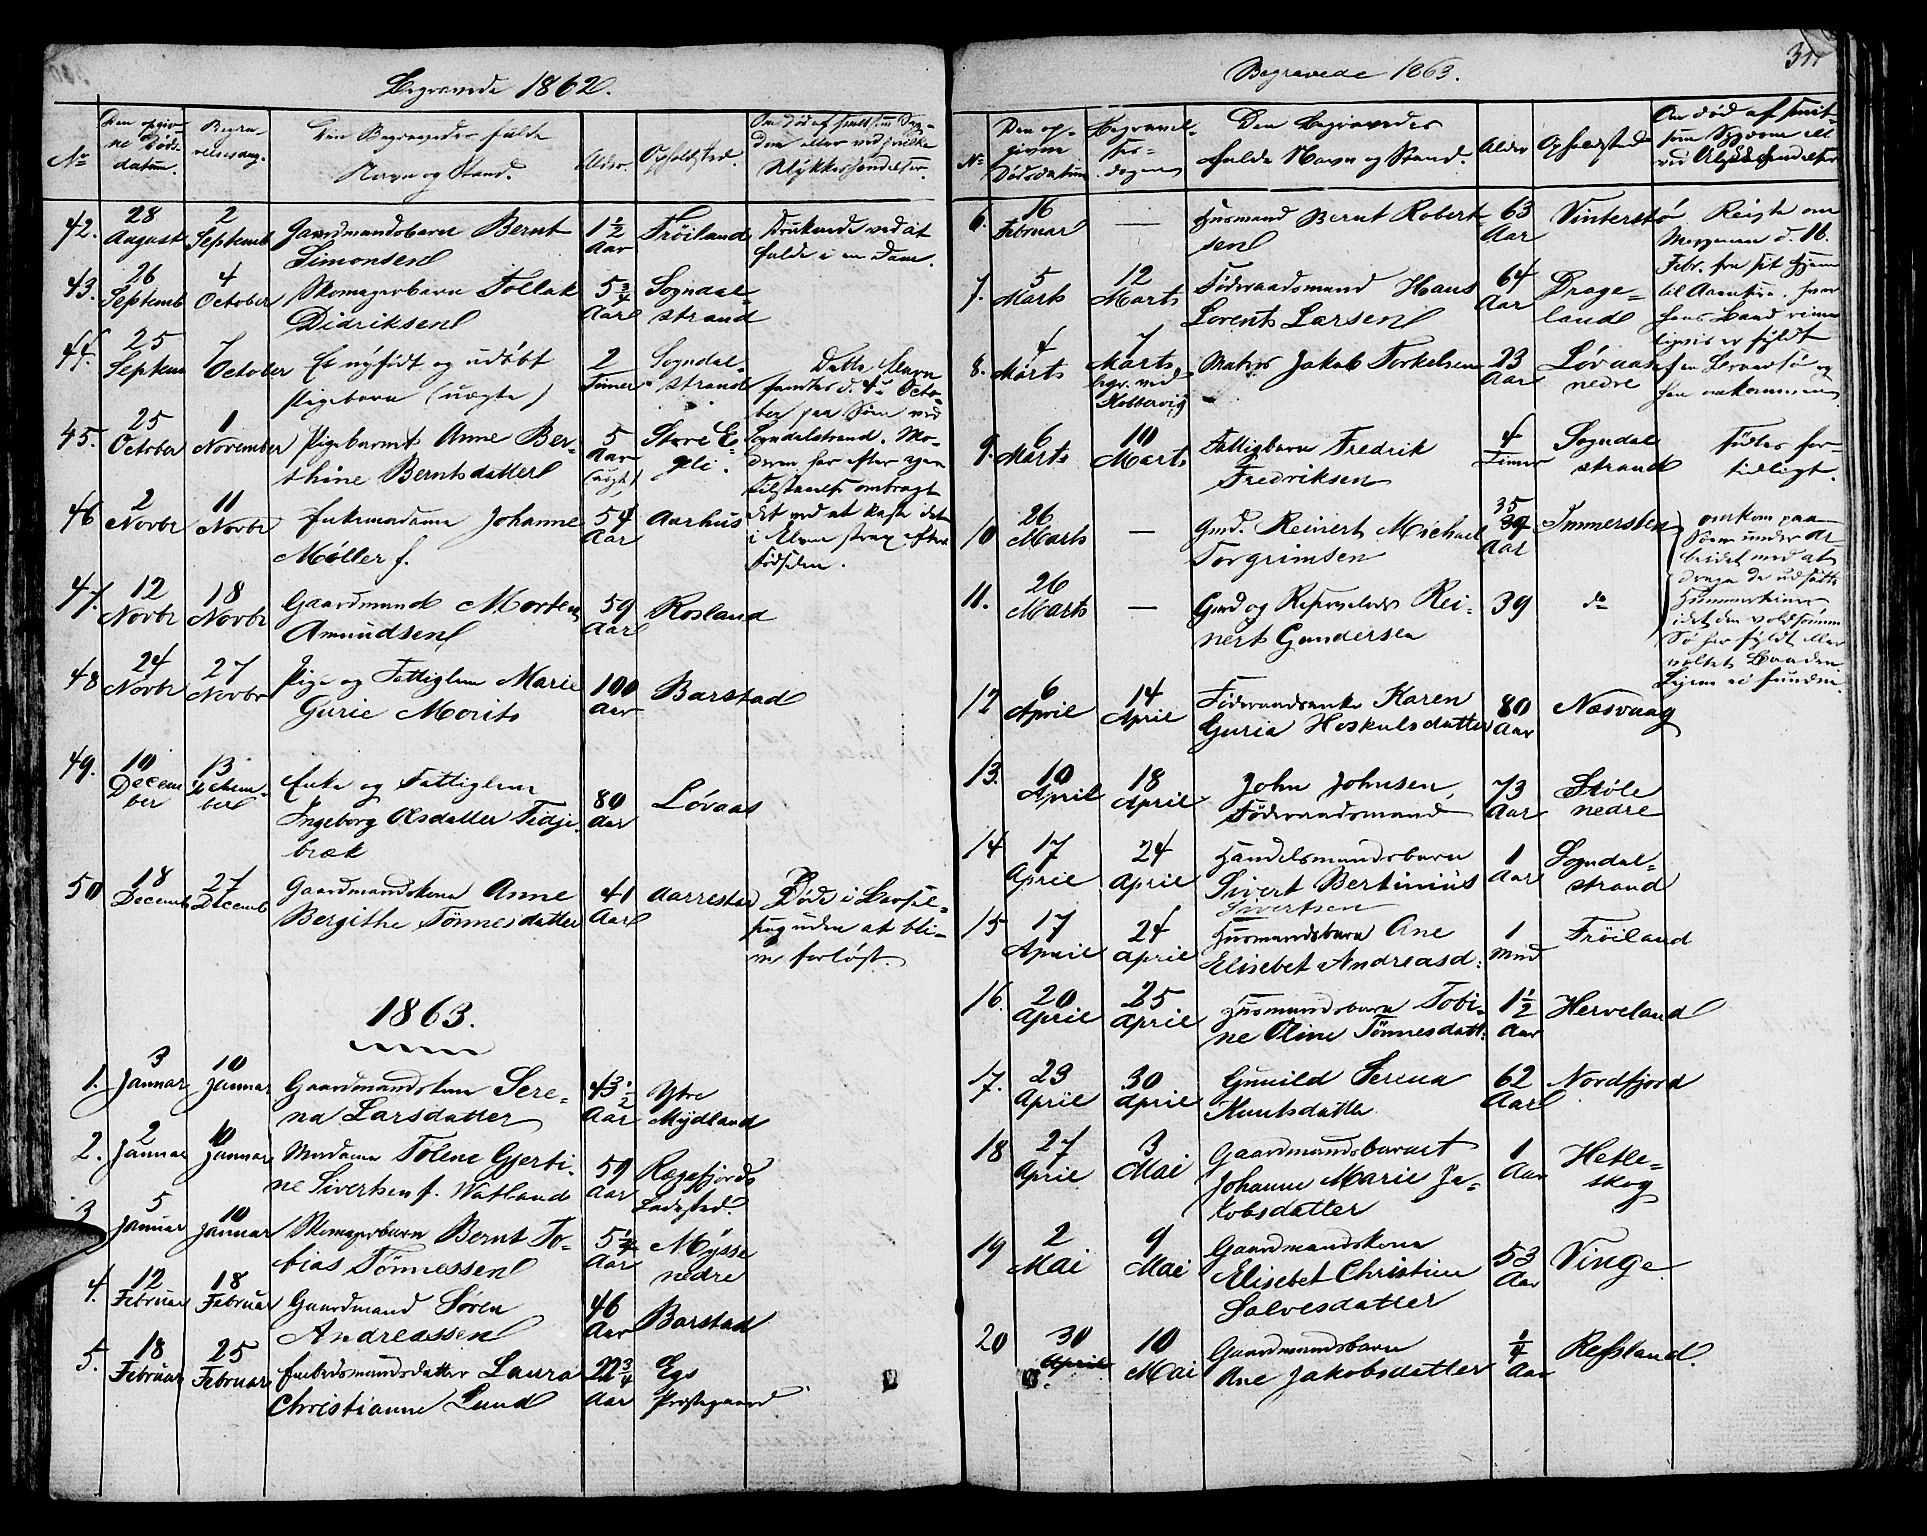 Begravede 1862.
No
Den opgiv-
ne Døds-
datum.
Begra-
velsesdag.
Den Begravedes fulde
Navn og Stand.
Alder.
Opholdssted.
Om død af smitsom Syg-
dom eller ved hvilke
Ulykkeshændelser.
42. 28 August 2 Septemb Gaardmandsbarn Bernt
Simonsen 1½ Aar Frøiland Druknede ved at
falde i en Dam.
43. 26 Septemb 4 October Skomagerbarn Tollak
Didriksen 5¾ Aar Sogndal-
strand
44. 25 Septem 7 October Et nyfødt og udøbt
Pigebarn (uægte) 2 Timer Sogndal-
strand Dette Barn
fandtes d. 4de Octo-
ber paa Søen ved
Sogndalstrand. Mo-
deren har efter egen
Tilstaaelse ombragt
det ved at kaste det
i Elven strax efter
Fødselen.
45. 25 October 1 November Pigebarnet Anne Ber-
thine Berntsdatter 5 Aar (uægte) Store Eg
46 2 Novbr 11 Novbr Enkemadame Johanne
Møller f. 54 Aar Aarhus
47. 12 Novbr 18 Novbr Gaardmand Morten
Amundsen 59 Aar Rosland
48 24 Novbr 27 Novbr Pige og Fattiglem Marie
Gurie Morits 100 Aar Barstad
49. 10 Decem
ber 13 Decem-
ber Enke og Fattiglem
Ingeborg Olsdatter Tidje
bræk 80 Aar Løvaas
50 18 Decemb 27 Decemb Gaardmandskone Anne
Bergithe Tønnesdatter 41 Aar Aarrestad Døde i Barsel-
seng uden at bli-
ve forløst.
1863.
1. 3 Januar 10 Januar Gaardmandskone Sere-
na Larsdatter 43½ Aar Ytre
Mydland
2. 2 Januar 10 Januar Madame Tolene Gjerti-
ne Sivertsen f. Watland 59 Aar Rægefjords
Ladested.
3 5 Januar 10 Januar Skomagerbarn Bernt To-
bias Tønnessen 5¼ Aar Mysse
nedre
4. 12 Februar 18 Februar Gaardmand Søren
Andreassen 46 Aar Barstad
5. 18 Februar 25 Februar Embedsmandsdatter Laura
Christianne Lund 22¾ Aar Egs
Præstegaard
Begravede 1863.
No
Den op-
givne
Dødsdatum
Begravel-
ses-
dagen
Den Begravedes
fulde Navn og Stand.
Alder
Opholdssted
Om død af smit-
som Sygdom ell
ved Ulykkeshændelser
6. 16 Februar — Husmand Bernt Robert
sen 63 Aar Vinterstø Reiste om
Morgenen d. 16.
Febr. fra sit Hjem
til hvor
hans Baad
er fyldt
og
han omkommen
7. 5 Marts 12 Marts Føderaadsmand Hans
Lorents Larsen 64 Aar Drage-
land
8. 4 Marts 7 Marts
begr. ved
Kobbervig Matros Jakob Torkelsen 23 Aar Løvaas
nedre
9. 6 Marts 10 Marts Fattigbarn Fredrik
Fredriksen 4 Timer Sogndal
strand Fødtes for-
tidligt.
10 26 Marts — Gmd. Reinert Michael
Torgrimsen 35 Aar Immersten omkom paa
Søen under Ar
beidet med at
drage de udsatte
Hummerteiner
idet den voldsomme
Sø har fyldt eller
væltet Baaden.
Ligene ei fundne.
11. 26 Marts — Gmd og Rei-
nert Gundersen 39 do
12 6 April 14 April Føderaadsenke Karen
Guria Hoskulsdatter 80 Aar Næsvaag
13. 10 April 18 April John Johnsen,
Føderaadsmand 73 Aar Støle
nedre
14 17 April 24 April Handelsmandsbarn
Sivert Bertinius
Sivertsen 1 Aar Sogndal-
strand
15 17 April 24 April Husmandsbarn Ane
Elisebet Andreasd. 1 Mnd Frøiland
16. 20 April 25 April Husmandsbarn Tobi-
ne Oline Tønnesdatt. 1½ Aar Herveland
17. 23 April 30 April Gunild Serena
Knutsdatter 62 Aar Nordfjord
18 27 April 3 Mai Gaardmandsbarnet
Johanne Marie Ja-
kobsdatter 1 Aar Hetle-
skog
19 2 Mai 9 Mai Gaardmandskone
Elisebet Christine
Salvesdatter 53 Aar Vinge
20 30 April 10 Mai Gaardmandsbarn
Ane Jakobsdatter ¼ Aar Refsland.